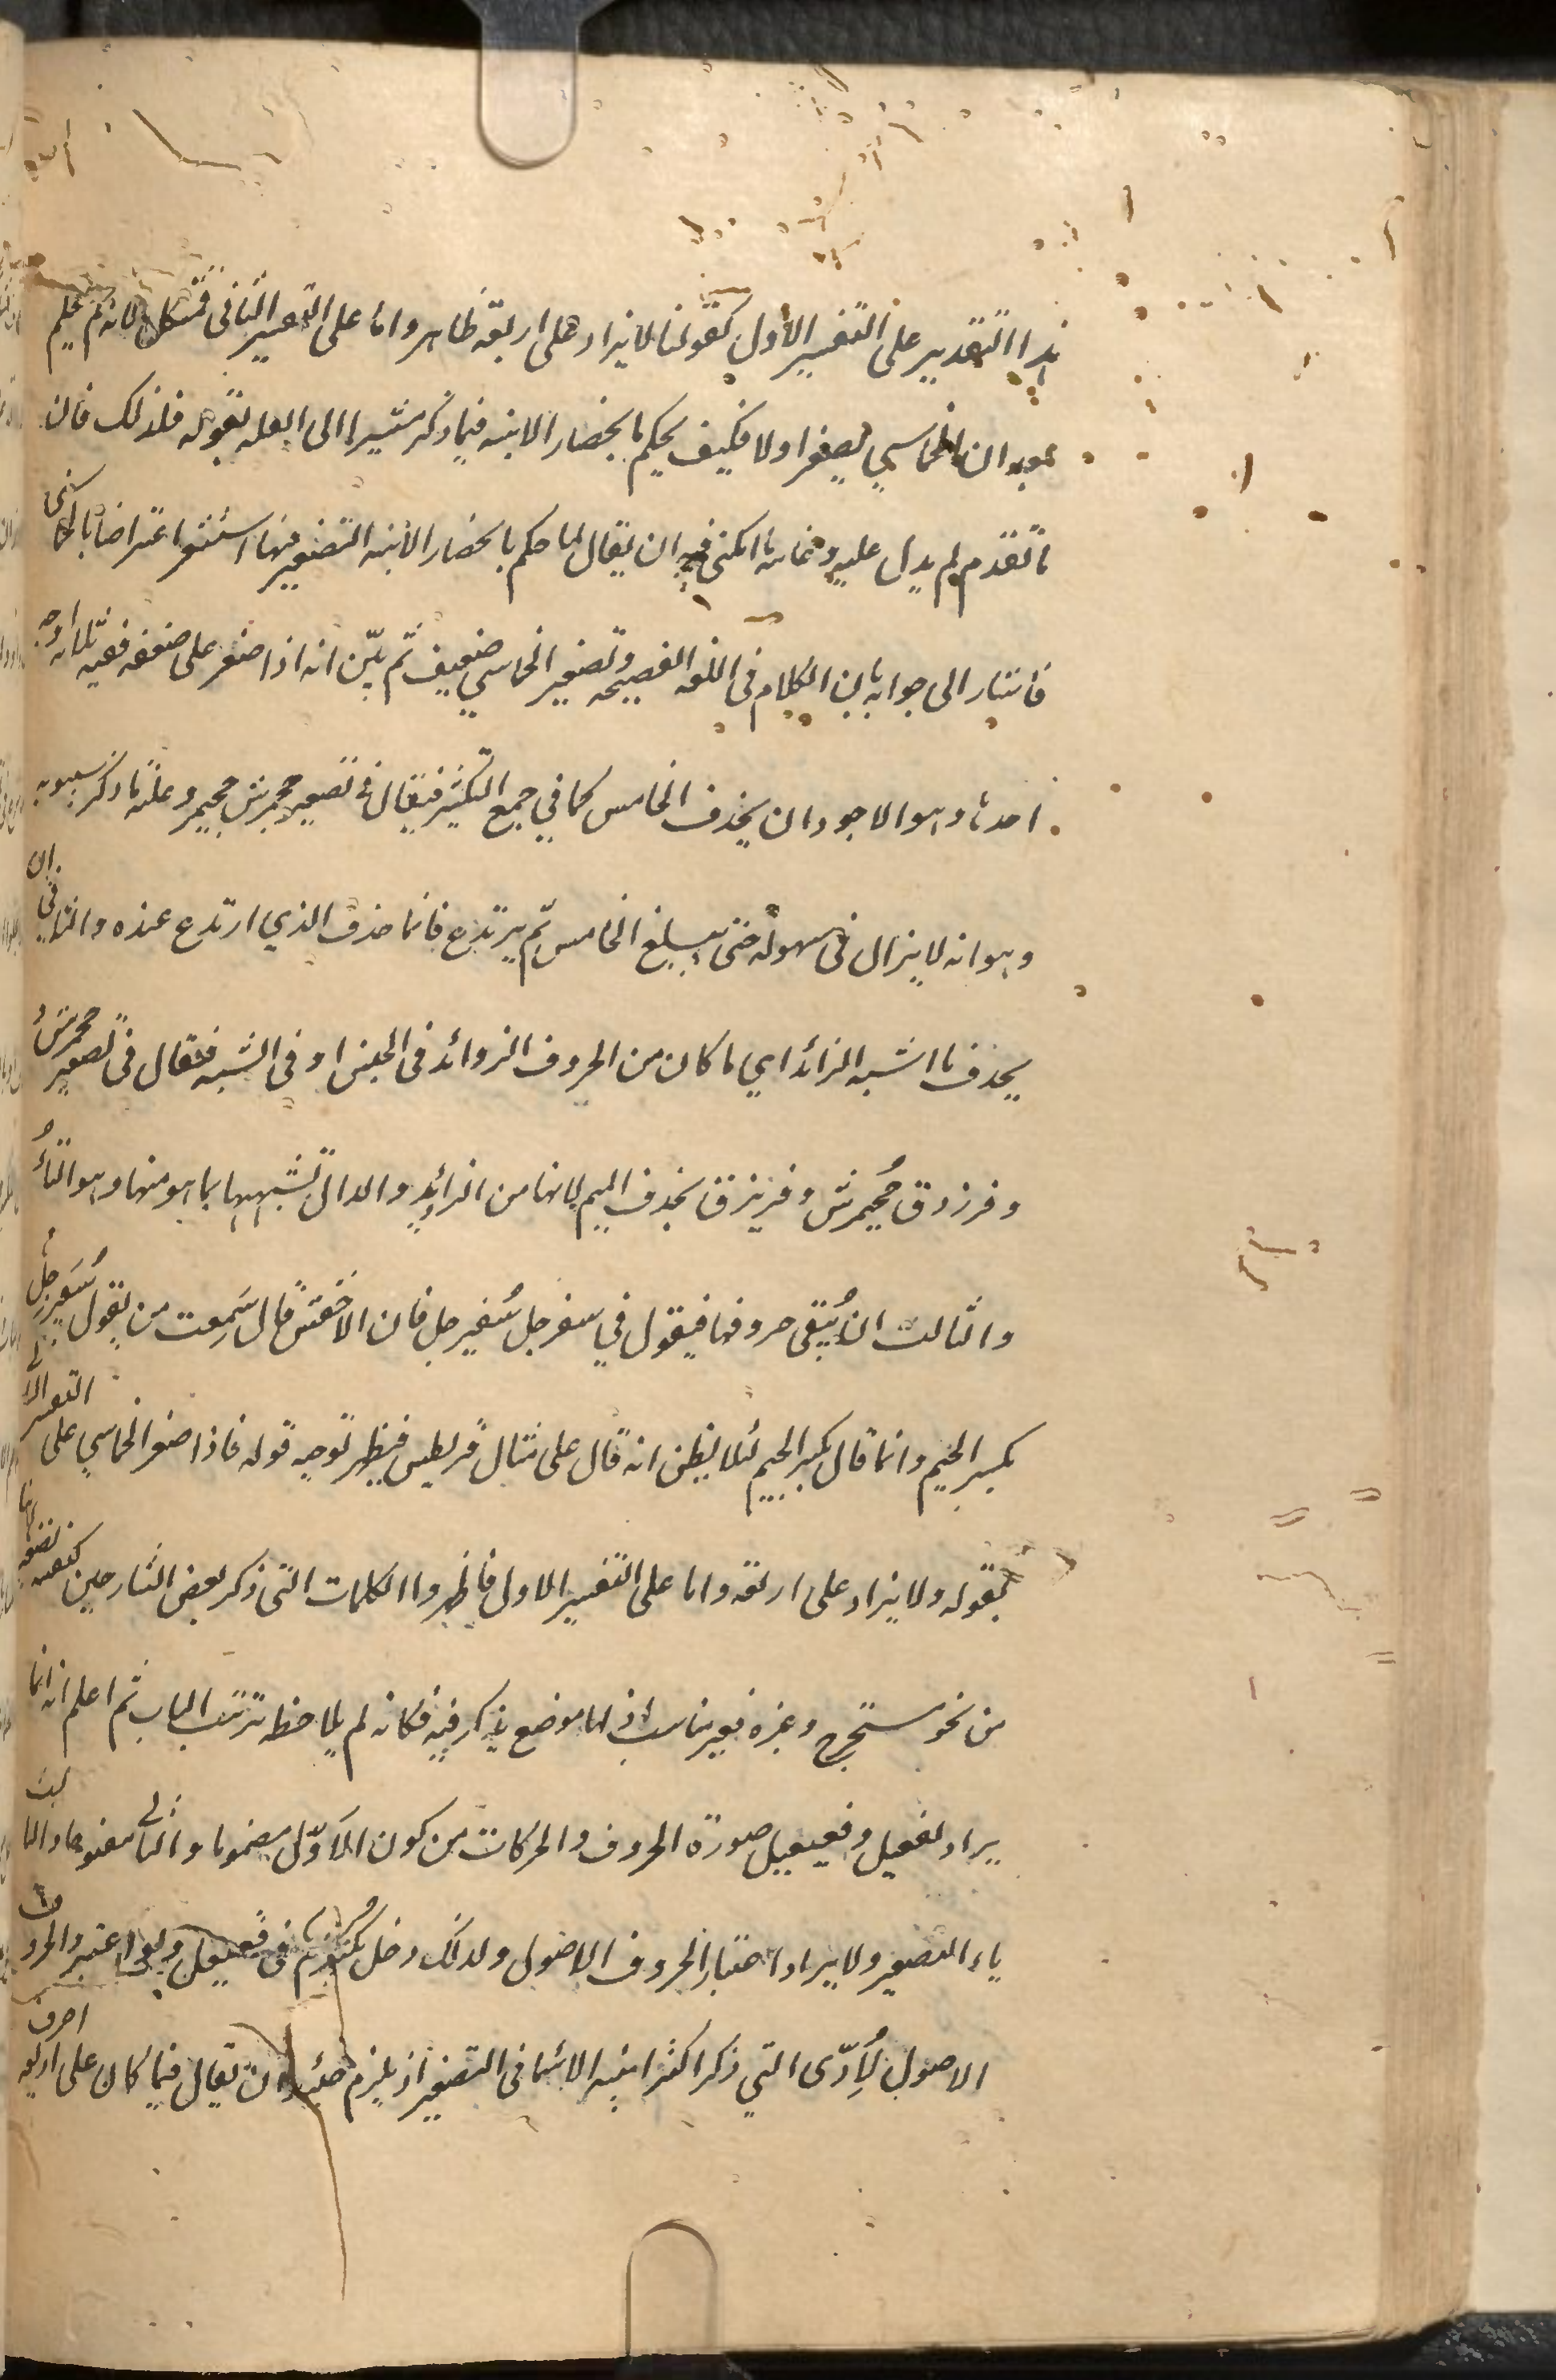 هذا التقدير على التفسير الأول كقولنا لا يزاد على اربعة ظاهر واما على التفسير الثاني فمشكل لانه لم يعلم
بعد ان الخماسي يصغر اولا فكيف يحكم بانحصار الابنية فيما ذكر مشيرا الى العلة بقوله فلذلك فان
ما تقدم لم يدل عليه وغاية ما امكن فيه ان يقال لما حكم بانحصار الابنية التصغير فيها استشعر اعتراضا بالخماسي
فأشار الى جوابه بان الكلام في اللغة الفصيحة وتصغير الخماسي ضعيف ثم بيّن انه اذا صغر على ضعفه ففيه ثلاثة اوجه
احدها وهو الاجود ان يحذف الخامس كما في جمع التكثير فيقال في تصغير جحمرش جحيمر وعلته ما ذكر سيبويه
وهو انه لا يزال في سهولة حتى يبلغ الخامس ثم يرتدع فانما حذف الذي ارتدع عنده والثاني ان
يحذف ما اشبه الزائد اي ما كان من الحروف الزوائد في الجنس او في الشبه فقال في تصغير جحمرش
وفرزدق جُحيرش وفريزق بحذف الميم لانها من الزوائد والدال لشبهها بما هو منها وهو التاء
والثالث ان يُبقى حروفها فيقول في سفرجل سُفيرجل فان الاخفش قال سَمِعت من يقول سُفَيرجِل
بكسر الجيم وانما قال بكسر الجيم لئلا يظن انه قال على مثال قريطيس فيظهر توجيه قوله فاذا صغر الخماسي على التفسير الا
بقوله ولا يزاد على اربعة واما على التفسير الاول فاظهر واالكلمات التي ذكر بعض الشارحين كيفية تصغيرها
من نحو مستخرج وغيره فغير مناسب اذ لها موضع يذكر فيه فكانه لم يلاحظ ترتيب الباب ثم اعلم انه انما
يراد بفعيل وفعيعيل صورة الحروف والحركات من كون الاَوّل مضموما والثاني مفتوحا والثالث
ياء التصغير ولا يراد اعتبار الحروف الاصول ولذلك دخل مُكَيْرِم في فعيعل ولو اعتبر والحروف
الاصول لَأدّى الى ذكر اكثر ابنية الاسما في التصغير اذ يلزم حينئذ ان يقال فيما كان على اربعة احرف